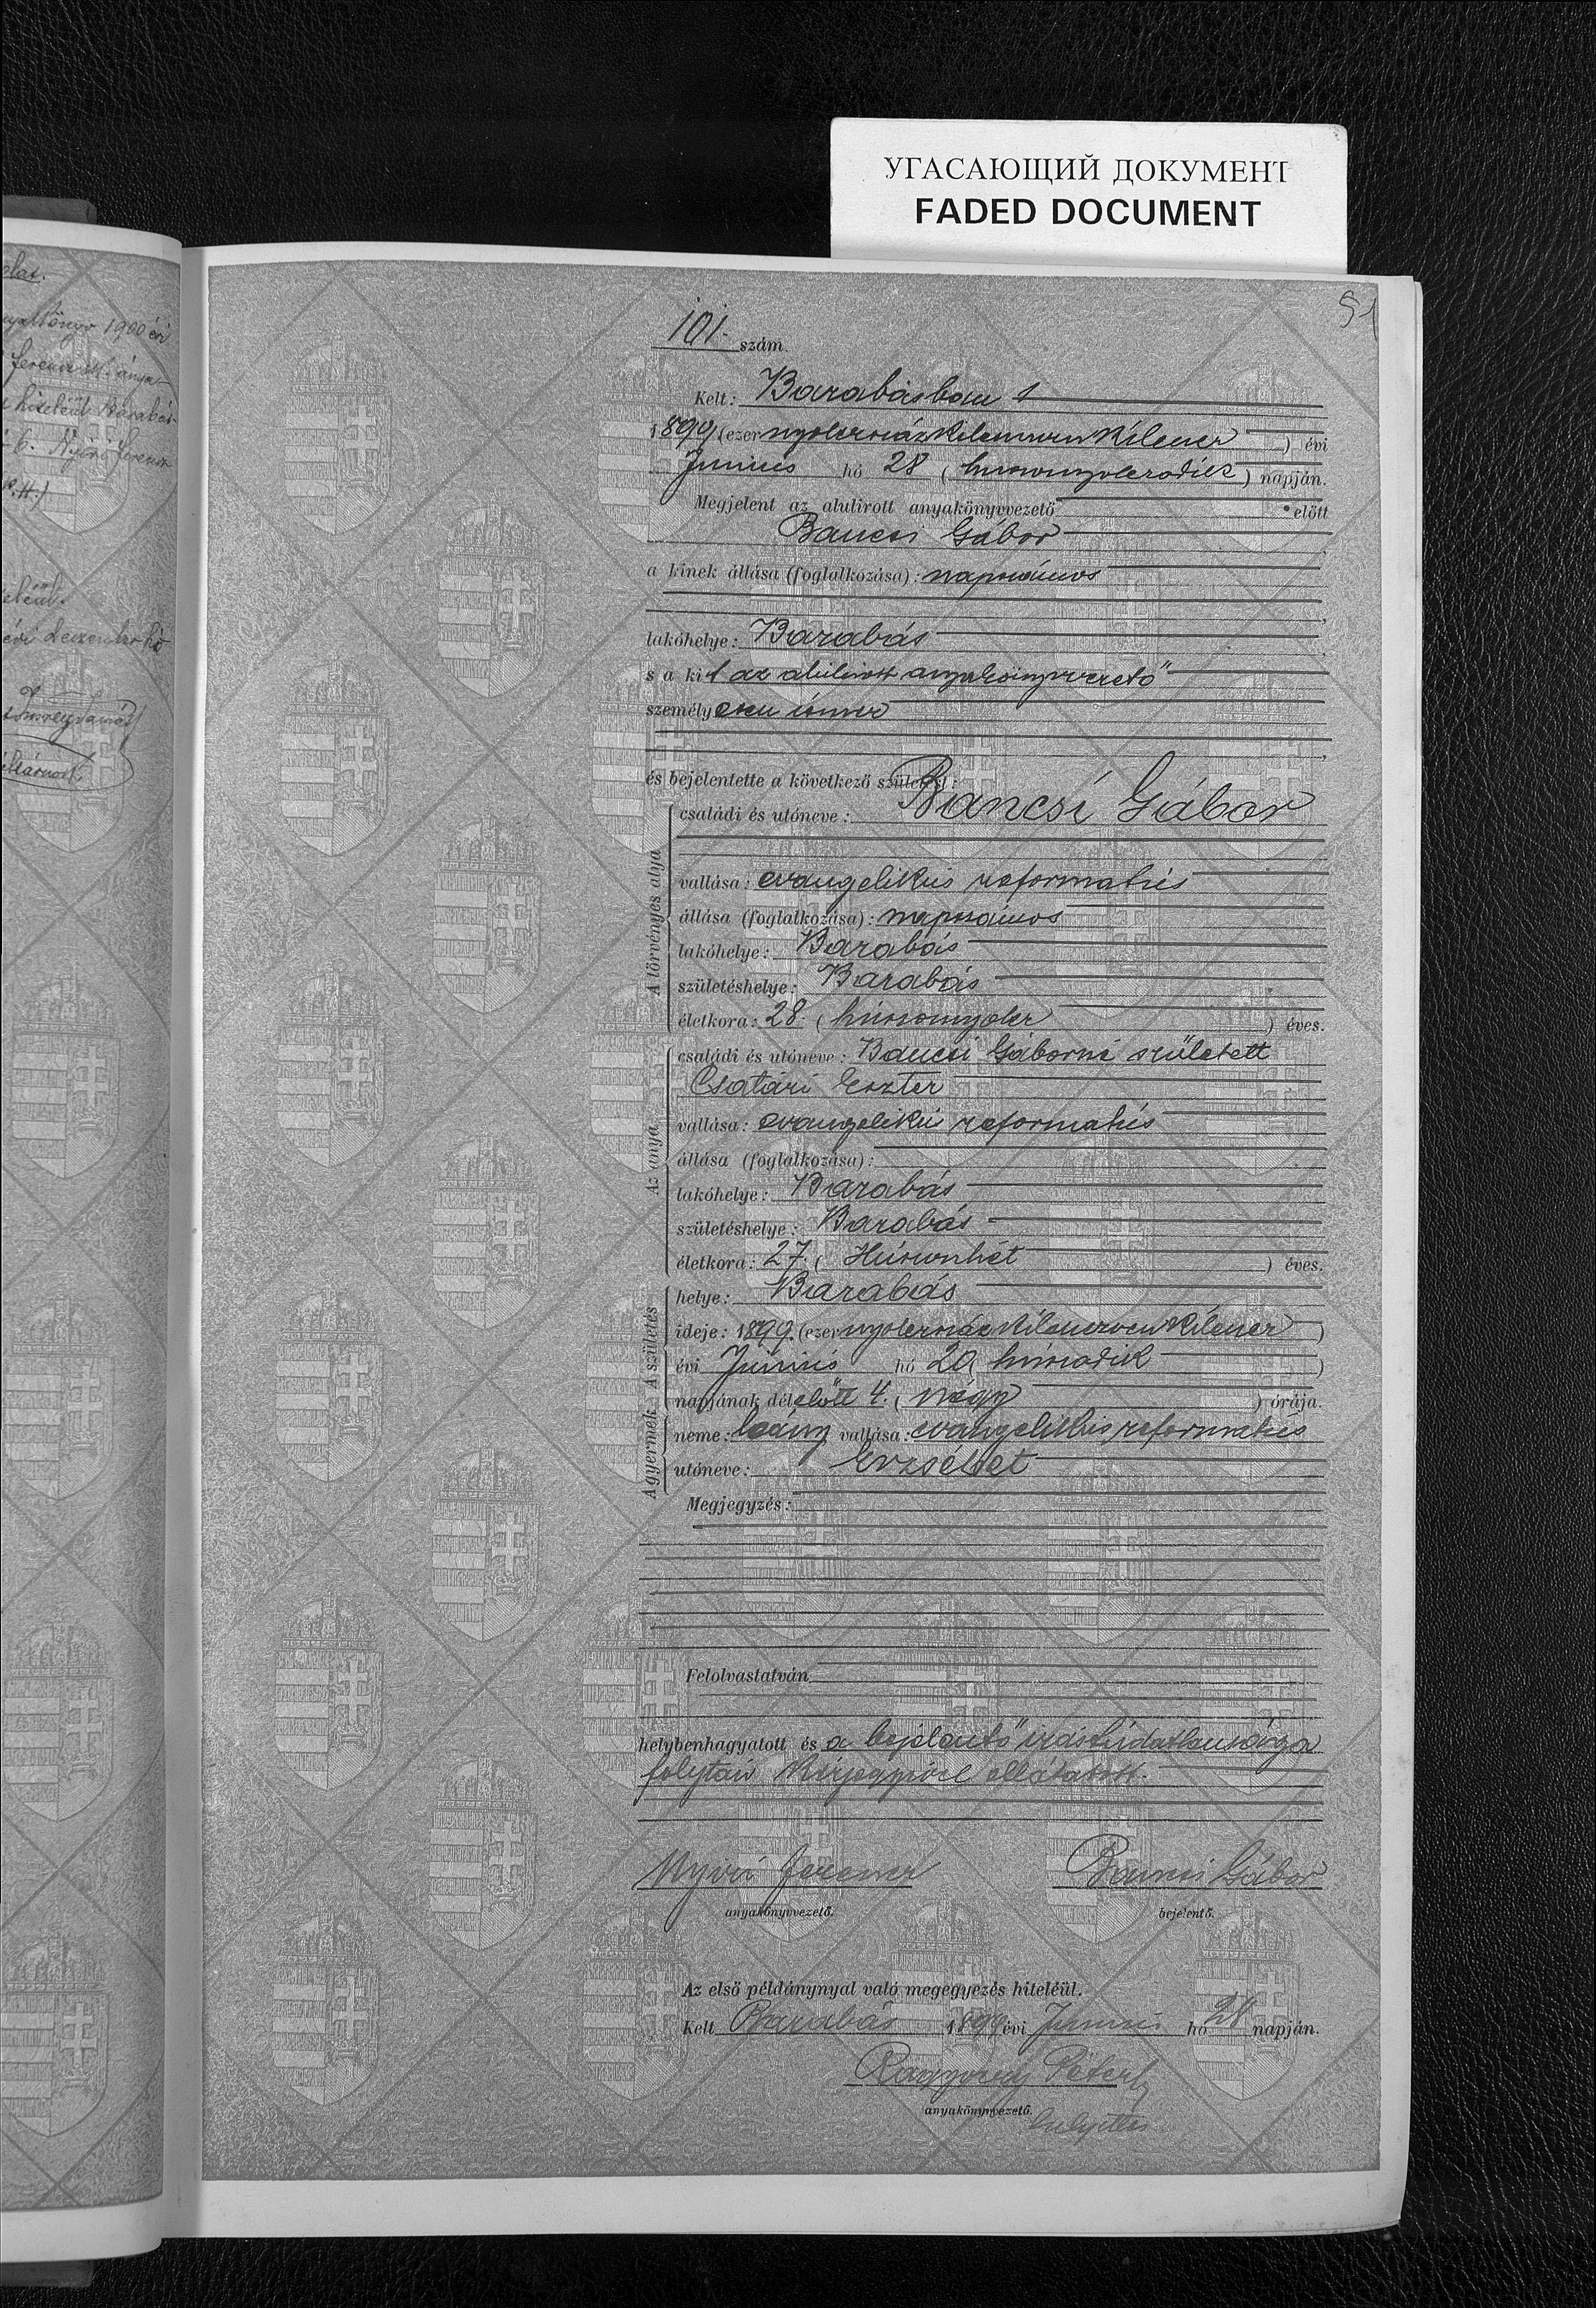 УГАСАЮЩИЙ ДОКУМЕНТ
FADED DOCUMENT
51
101. szám.
Kelt: Barabásban
1899 (ezernyolczszázkilenczvenkilencz) évi
Junius hó 28 (huszonnyolczadik) napján.
Megjelent az alulirott anyakönyvvezető előtt
Bancsi Gábor
a kinek állása (foglalkozása): napszámos
lakóhelye: Barabás
s a kit az alulirott anyakönyvvezető
személyesen ismer
és bejelentette a következő születést:
A törvényes atya
családi és utóneve: Bancsi Gábor
vallása: evangelikus reformatus
állása (foglalkozása): napszámos
lakóhelye: Barabás
születéshelye: Barabás
életkora: 28. (huszonnyolcz) éves.
Az anya
családi és utóneve: Bancsi Gáborné született
Csatári Eszter
vallása: evangelikus reformatus
állása (foglalkozása):
lakóhelye: Barabás
születéshelye: Barabás
életkora: 27. (Húszonhét) éves.
A születés
helye: Barabás
ideje: 1899. (ezernyolczszázkilenczvenkilencz)
évi Junius hó 20 (húszadik)
napjának délelőtt 4. (négy) órája.
A gyermek
neme: leány vallása: evangelikus reformatus
utóneve: Erzsébet
Megjegyzés:
Felolvastatván
helybenhagyatott és a bejelentő irástudatlansága
folytán kézjegyével ellátatott.
Nyíri Ferencz Bancsi Gábor
anyakönyvvezető. bejelentő.
Az első példánynyal való megegyezés hiteléül.
Kelt Barabás 1899 évi Junius hó 28 napján.
Péter
anyakönyvvezető.
helyettes